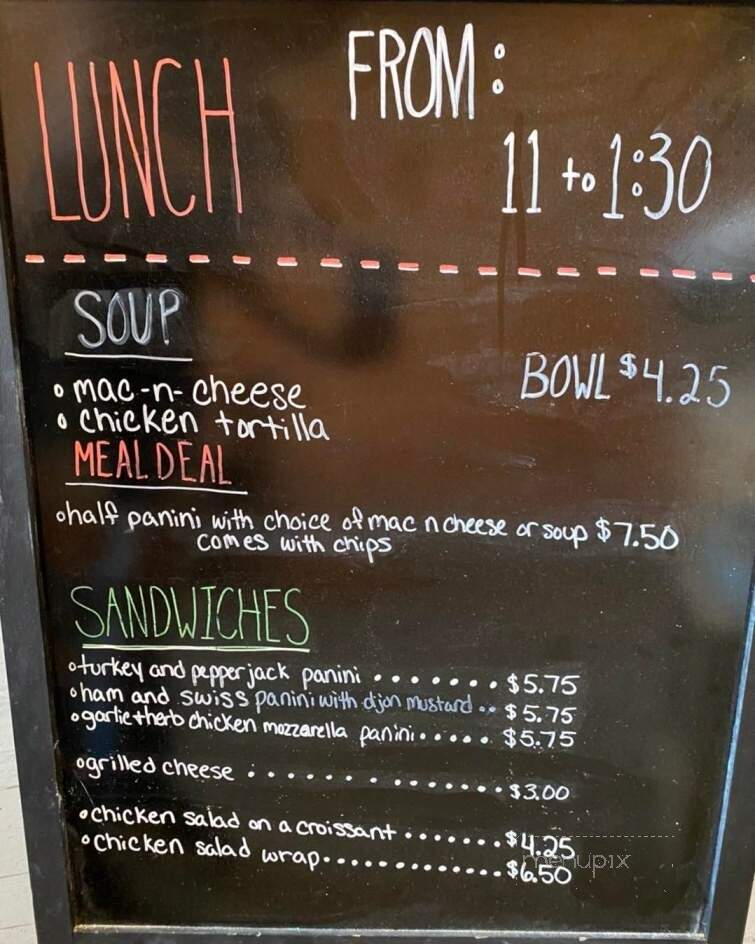 LUNCH FROM:
11 to 1:30
SOUP
BOWL $4.25
o mac-n-cheese
o chicken tortilla
MEAL DEAL
o half panini with choice of mac n cheese or soup $7.50
comes with chips
SANDWICHES
o turkey and pepper jack panini ....... $5.75
o ham and swiss panini with dijon mustard .. $5.75
o garlic + herb chicken mozzarella panini ..... $5.75
o grilled cheese ............. $3.00
o chicken salad on a croissant ....... $4.25
o chicken salad wrap ............. $6.50
menupix